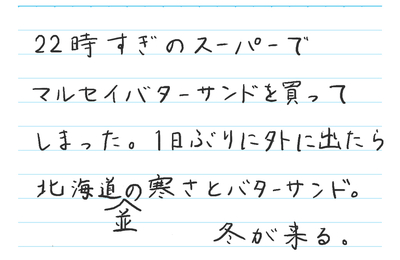 22時すぎのスーパーで
マルセイバターサンドを買って
しまった。1日ぶりに外に出たら
北海道並の寒さとバターサンド。
冬が来る。